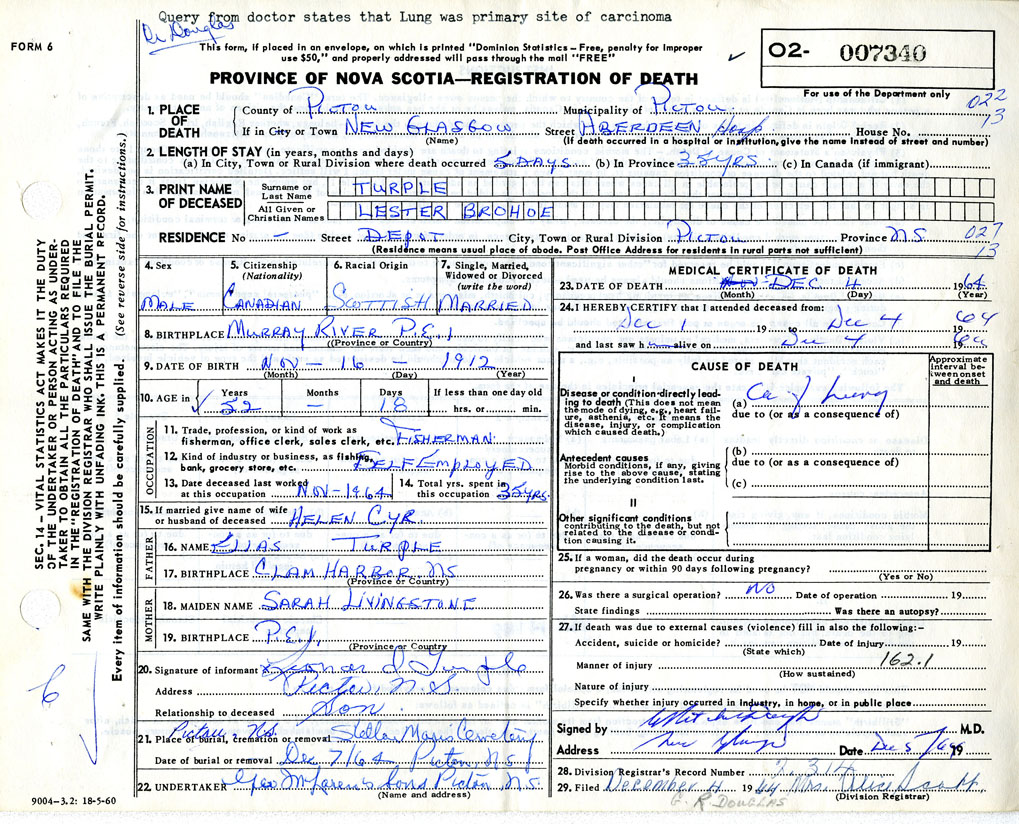 Query from doctor states that Lung was primary site of carcinoma
Dr Douglas
FORM 6
This form, if placed in an envelope, on which is printed "Dominion Statistics – Free, penalty for improper
use $50," and properly addressed will pass through the mail "FREE"
O2- 007340
For use of the Department only
PROVINCE OF NOVA SCOTIA—REGISTRATION OF DEATH
022
13
1. PLACE OF DEATH
County of PICTOU Municipality of PICTOU
If in City or Town NEW GLASGOW Street ABERDEEN Hosp House No.
(Name) (If death occurred in a hospital or institution, give the name instead of street and number)
2. LENGTH OF STAY (in years, months and days)
(a) In City, Town or Rural Division where death occurred 5 DAYS (b) In Province 35 YRS. (c) In Canada (if immigrant)
3. PRINT NAME OF DECEASED
Surname or Last Name TURPLE
All Given or Christian Names LESTER BROHOE
RESIDENCE No – Street DEPOT City, Town or Rural Division PICTOU Province NS
(Residence means usual place of abode. Post Office Address for residents in rural parts not sufficient)
027
13
4. Sex MALE
5. Citizenship (Nationality) CANADIAN
6. Racial Origin SCOTTISH
7. Single, Married, Widowed or Divorced (write the word) MARRIED
8. BIRTHPLACE MURRAY RIVER P.E.I
(Province or Country)
9. DATE OF BIRTH NOV – 16 – 1912
(Month) (Day) (Year)
10. AGE in Years 52 Months – Days 18 If less than one day old hrs. or min.
OCCUPATION
11. Trade, profession, or kind of work as fisherman, office clerk, sales clerk, etc. FISHERMAN
12. Kind of industry or business, as fishing, bank, grocery store, etc. SELF EMPLOYED
13. Date deceased last worked at this occupation NOV-1964
14. Total yrs. spent in this occupation 35 YRS.
15. If married give name of wife or husband of deceased HELEN CYR
FATHER
16. NAME ELIAS TURPLE
17. BIRTHPLACE CLAM HARBOR NS
(Province or Country)
MOTHER
18. MAIDEN NAME SARAH LIVINGSTONE
19. BIRTHPLACE P.E.I.
(Province or Country)
20. Signature of informant
Address Pictou, N.S.
Relationship to deceased Son
21. Place of burial, cremation or removal Pictou, NS. Stella Maris Cemetery
Date of burial or removal Dec 7/64, Pictou, NS
22. UNDERTAKER Sons Pictou N.S.
(Name and address)
9004—3.2: 18-5-60
MEDICAL CERTIFICATE OF DEATH
23. DATE OF DEATH DEC 4 1964
(Month) (Day) (Year)
24. I HEREBY CERTIFY that I attended deceased from:
Dec 1 19 to Dec 4 19 64
and last saw h alive on Dec 4 19 64
CAUSE OF DEATH
Approximate interval between onset and death
I
Disease or condition directly leading to death (This does not mean the mode of dying, e.g., heart failure, asthenia, etc. It means the disease, injury, or complication which caused death.)
(a) Ca of Lung
due to (or as a consequence of)
Antecedent causes
Morbid conditions, if any, giving rise to the above cause, stating the underlying condition last.
(b)
due to (or as a consequence of)
(c)
II
Other significant conditions contributing to the death, but not related to the disease or condition causing it.
25. If a woman, did the death occur during
pregnancy or within 90 days following pregnancy?
(Yes or No)
26. Was there a surgical operation? NO Date of operation 19
State findings Was there an autopsy?
27. If death was due to external causes (violence) fill in also the following:–
Accident, suicide or homicide? Date of injury 19
(State which)
Manner of injury 162.1
(How sustained)
Nature of injury
Specify whether injury occurred in industry, in home, or in public place
Signed by M.D.
Address Date Dec 5
28. Division Registrar's Record Number 314
29. Filed December 4 1964 Mrs.
(Division Registrar)
G. R DOUGLAS
SEC. 14 – VITAL STATISTICS ACT MAKES IT THE DUTY
OF THE UNDERTAKER OR PERSON ACTING AS UNDER-
TAKER TO OBTAIN ALL THE PARTICULARS REQUIRED
IN THE "REGISTRATION OF DEATH" AND TO FILE THE
SAME WITH THE DIVISION REGISTRAR WHO SHALL ISSUE THE BURIAL PERMIT.
WRITE PLAINLY WITH UNFADING INK. THIS IS A PERMANENT RECORD.
Every item of information should be carefully supplied. (See reverse side for instructions.)